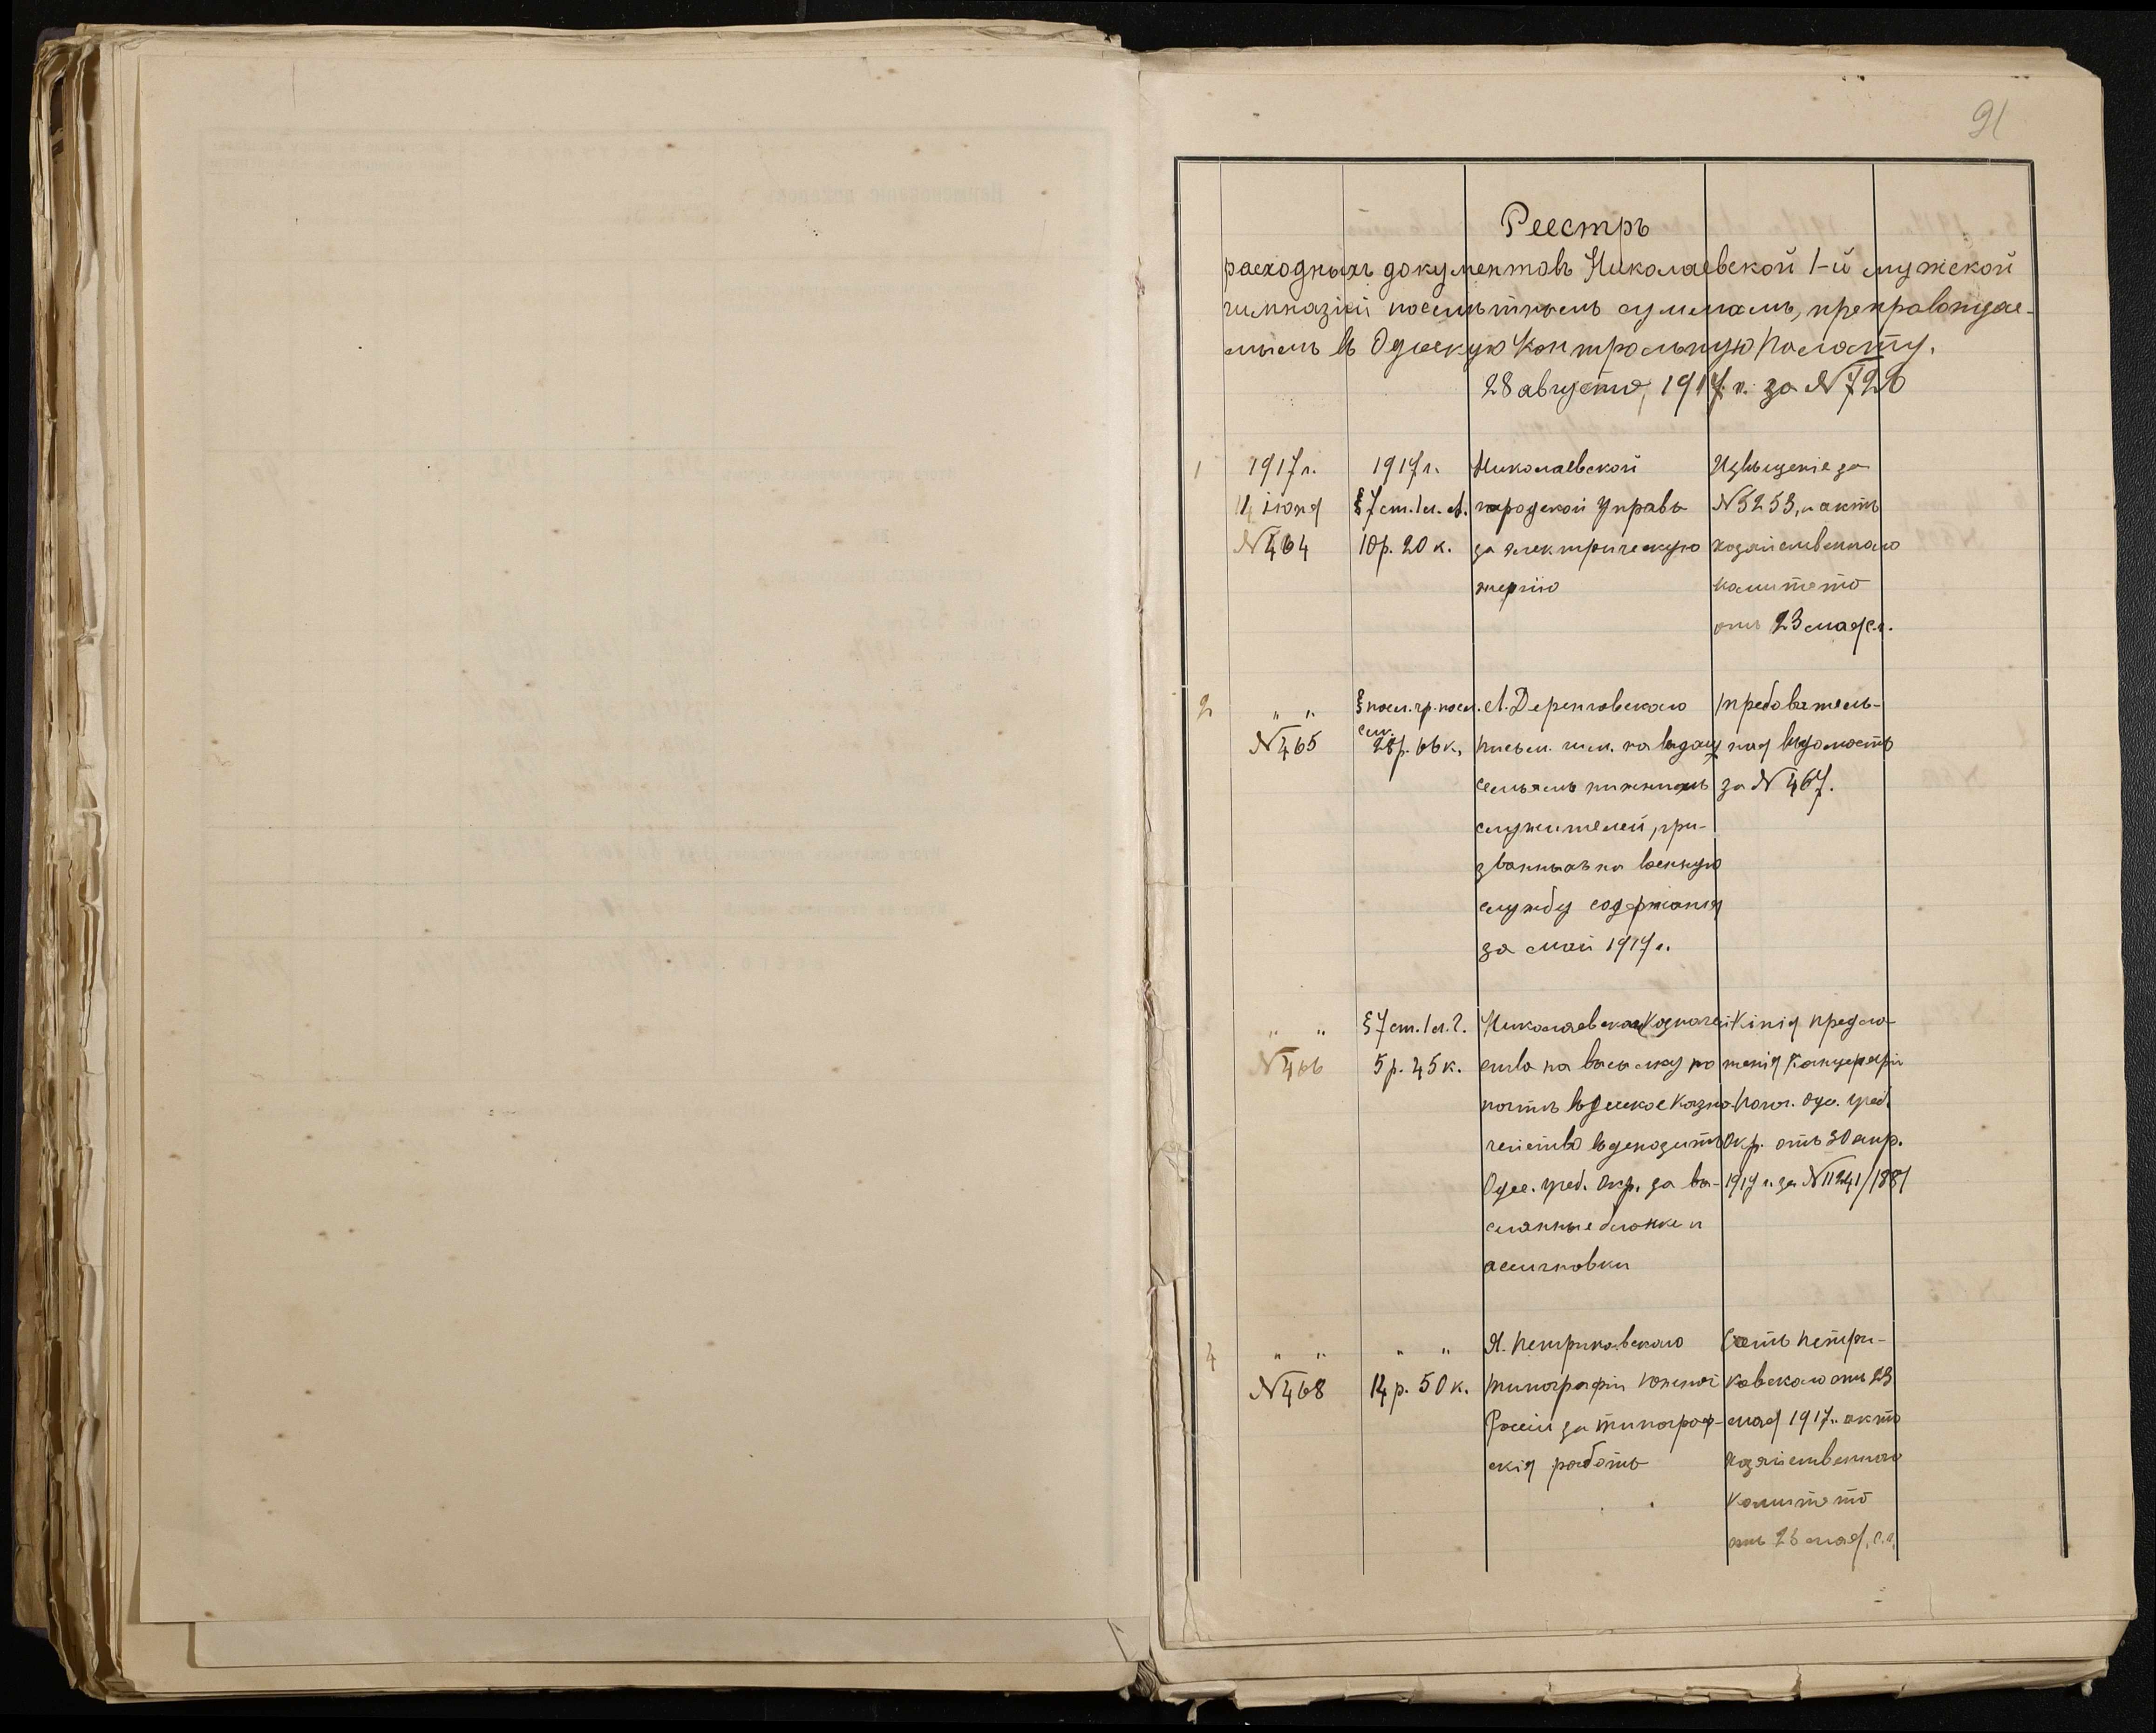 91
Реестръ
расходныхъ документовъ Николаевской 1-й мужской
гимназіи по смѣтнымъ суммамъ, препровождае-
мымъ въ Одесскую Контрольную Палату.
28 августа, 1917 г. за №720
1
1917 г.
11 іюня
№464
1917 г.
§7 ст. 1 л. А.
10 р. 20 к.
Николаевской
городской Управѣ
за электрическую
энергію
Извѣщеніе за
№5253, и актъ
хозяйственнаго
комитета
отъ 23 мая с.г.
2
" "
№465
§ посл. гр. посл.
см.
28 р. 66 к.
А. Деренговскаго
письм. гим. на выдачу
семьямъ нижнихъ
служителей, при-
званныхъ на военную
службу содержанія
за май 1917 г.
требователь-
ная вѣдомость
за №467.
" "
№466
§7 ст. 1 л. 2.
5 р. 45 к.
Николаевское Казначей-
ство на высылку по
почтѣ въ Одесское Казна-
чейство въ депозитъ
Одес. учеб. Окр. за вы-
сланные бланки и
ассигновки
Копія предло-
женія Канцеляріи
Попеч. Одес. учеб.
Окр. отъ 30 апр.
1917 г. за №11241/1881
4
" "
№468
" "
14 р. 50 к.
Я. Петриковскаго
типографіи Южной
Россіи за типограф-
скія работы
Счетъ Петри-
ковскаго отъ 23
мая 1917 г. актъ
хозяйственнаго
Комитета
отъ 23 мая, с.г.